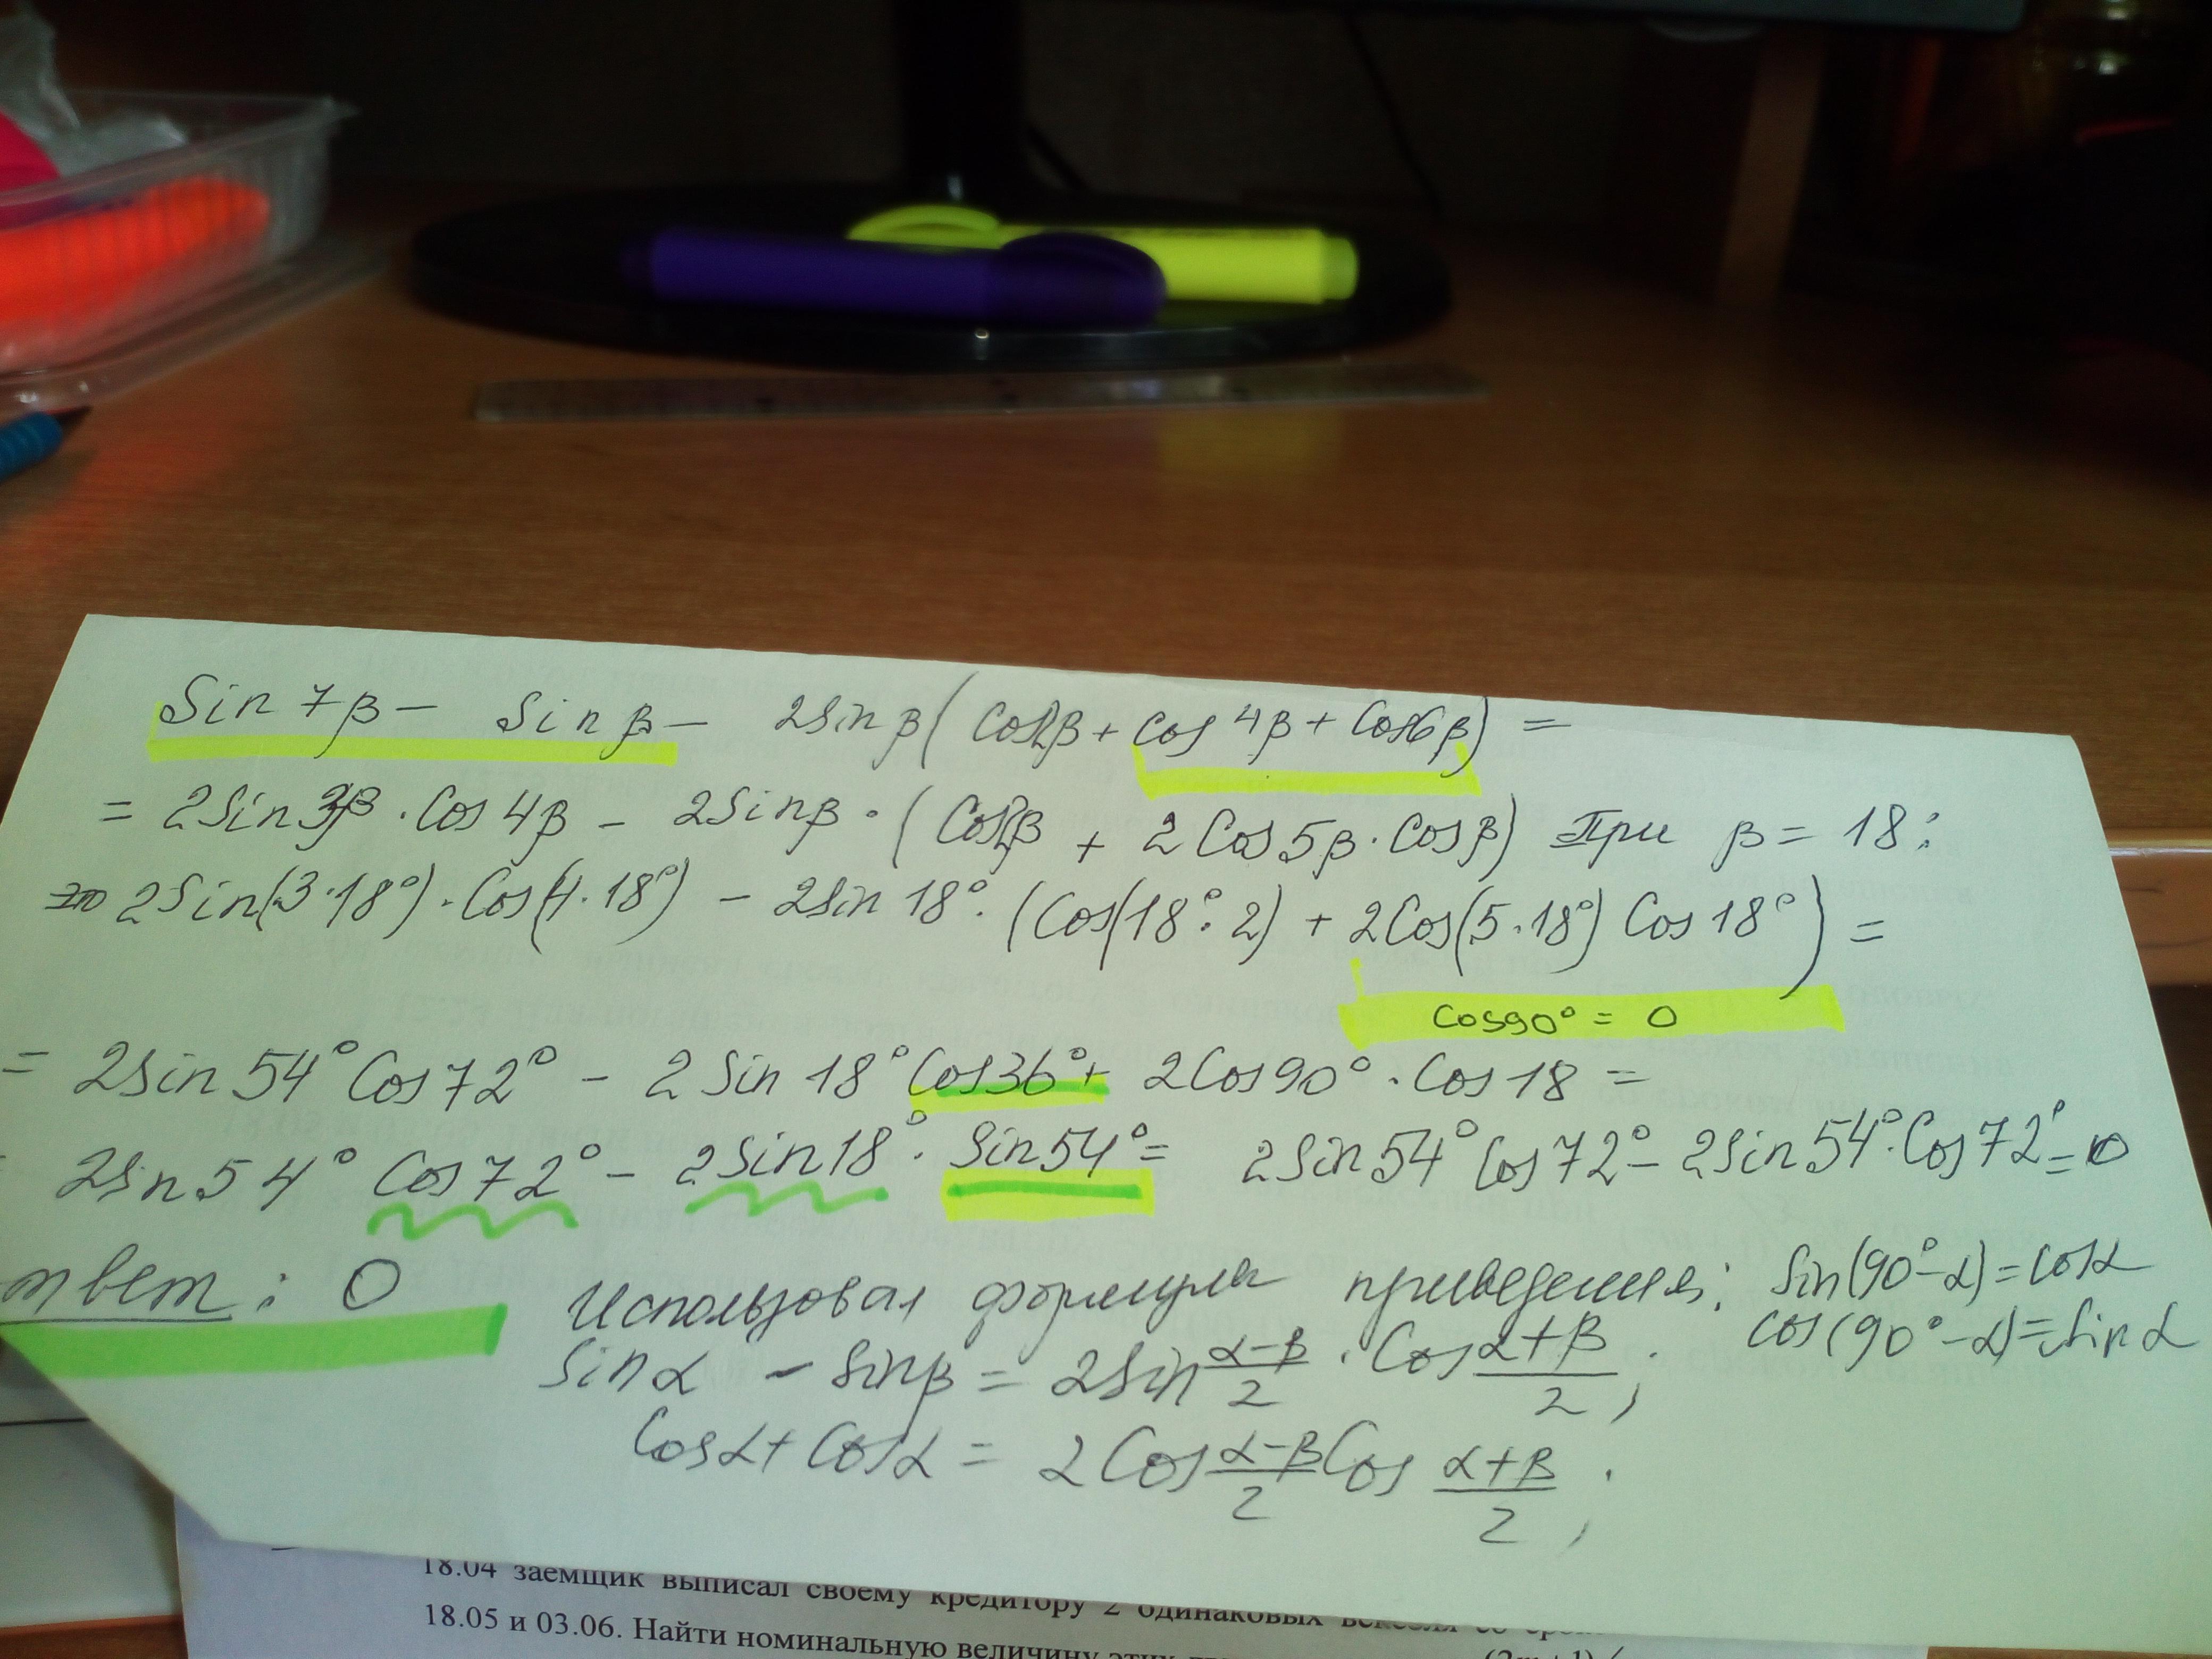 Sin 7β - Sin β - 2Sin β (Cos2β + Cos 4β + Cos6β) =
= 2Sin3β · Cos 4β - 2Sinβ · (Cos2β + 2Cos5β · Cosβ) При β = 18:
2Sin(3·18°) · Cos(4·18°) - 2Sin 18° · (Cos(18°·2) + 2Cos(5·18°) Cos 18°) =
Cos90° = 0
= 2Sin 54° Cos 72° - 2 Sin 18° Cos36° + 2Cos90° · Cos 18 =
2Sin54° Cos 72° - 2Sin18° · Sin54° = 2Sin54° Cos72° - 2Sin54° · Cos72° = 0
твет : 0
Использовал формулы приведения: Sin(90°-α) = Cosα
Cos(90°-α) = Sinα
Sinα - Sinβ = 2Sin α-β/2 · Cos α+β/2 ;
Cosα + Cosα = 2Cos α-β/2 Cos α+β/2 ;
18.04 заемщик выписал своему кредитору 2 одинаковых векселя со
18.05 и 03.06. Найти номинальную величину этих